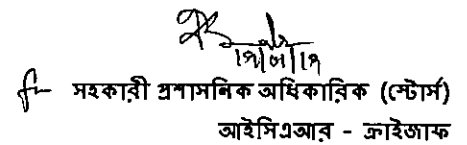 সহকারী প্রশাসনিক অধিকারিক (স্টোর্স)
আইসিএআর - ক্রাইজাফ